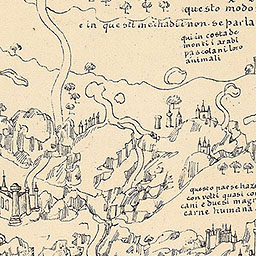 questo modo
e in que sti me chadi non se parla
qui in costa de
monti i arabi
pascolani loro
animali
questo paese haza
con volti quasi co
cani e duesi magn
carne humana